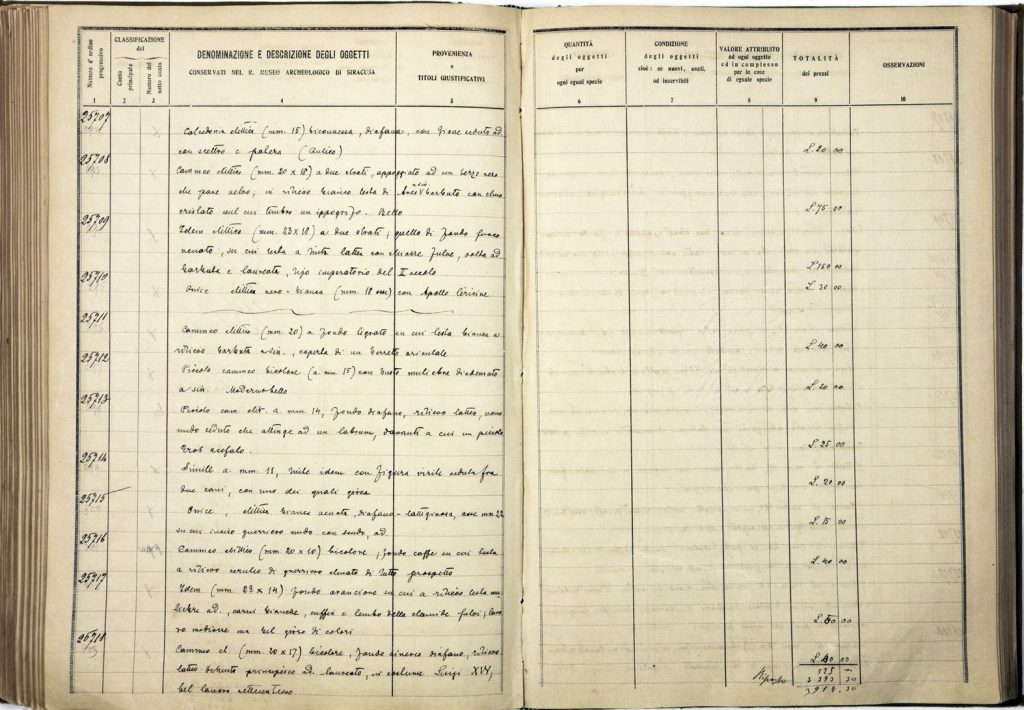 Numero d' ordine progressivo
CLASSIFICAZIONE del
Conto principale
Numero del sotto conto
DENOMINAZIONE E DESCRIZIONE DEGLI OGGETTI
CONSERVATI NEL R. MUSEO ARCHEOLOGICO DI SIRACUSA
PROVENIENZA
e
TITOLI GIUSTIFICATIVI
1 2 3 4 5
25707
Calcedonia ellittica (mm. 15) diafana, con Giove seduto ad
con scettro e patera (Antico)
25708
Cammeo ellittico (mm. 20 x 18) a due strati, appoggiato ad un terzo nero
che pare vetro; in rilievo bianco testa di Ares barbuto con elmo
cristato sul cui timbro un ippogrifo. Bello
25709
Idem ellittico (mm. 23 x 18) a due strati; quello di fondo fumo
venato, su cui testa a tinta lattea con volta ad.
barbuta e laureata, tipo imperatorio del II secolo
25710
Onice ellittica nero-bianca (mm. 18) con Apollo
25711
Cammeo ellittico (mm. 20) a fondo su cui testa bianca a
rilievo barbuta a sin., coperta di un berretto orientale
25712
Piccolo cammeo bicolore (a. mm. 15) con busto muliebre diademato
a sin. Moderno bello
25713
Piccolo cam. elit. a. mm. 14, fondo diafano, rilievo latteo, uomo
nudo seduto che attinge ad un labrum, davanti a cui un piccolo
Eros acefalo.
25714
Simile a. mm. 11, tinte idem con figura virile seduta fra
due cani, con uno dei quali gioca
25715
Onice, ellittica bianca venata, diafano-lattiginosa, asse mm. 22
su cui inciso guerriero nudo con scudo, ad
25716
Cammeo ellittico (mm. 20 x 10) bicolore, fondo caffe su cui testa
a rilievo di guerriero elmato di tutto prospetto
25717
Idem (mm. 23 x 14) fondo arancione su cui a rilievo testa mu
liebre ad., carni bianche, cuffia e lembo della clamide fulvi; lavo
ro mediocre ma bel gioco di colori
25718
Cammeo el. (mm. 20 x 17) bicolore, fondo cinereo diafano, rilievo
latteo busto principesco ad. laureato, in costume Luigi XIV,
bel lavoro settecentesco
QUANTITÀ
degli oggetti
per
ogni egual specie
CONDIZIONE
degli oggetti
cioè: se nuovi, usati,
od inservibili
VALORE ATTRIBUITO
ad ogni oggetto
ed in complesso
per le cose
di eguale specie
TOTALITÀ
dei prezzi
OSSERVAZIONI
6 7 8 9 10
L. 20 00
L. 75 00
L. 150 00
L. 30 00
L. 40 00
L. 20 00
L. 25 00
L. 20 00
L. 15 00
L. 40 00
00
00
Riporto